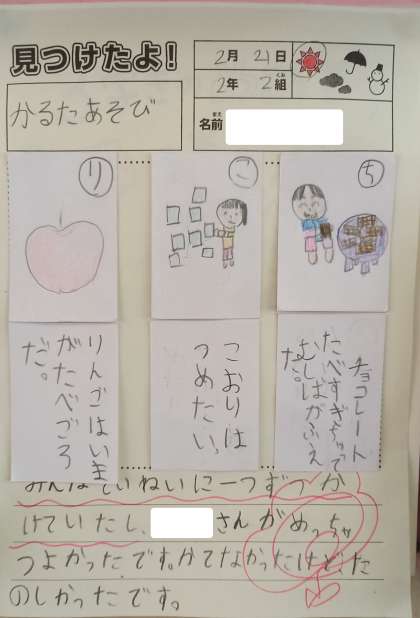 見つけたよ!
2月 21日
2年 2組
名前
かるたあそび
ち
こ
り
チョコレート
たべすぎちゃって
むしばがふえ
た。
こおりは
つめたい。
りんごはいま
がたべごろ
だ。
みんなていねいに一つずつか
けていたし、
さんがめっちゃ
つよかったです。かてなかったけど、た
のしかったです。